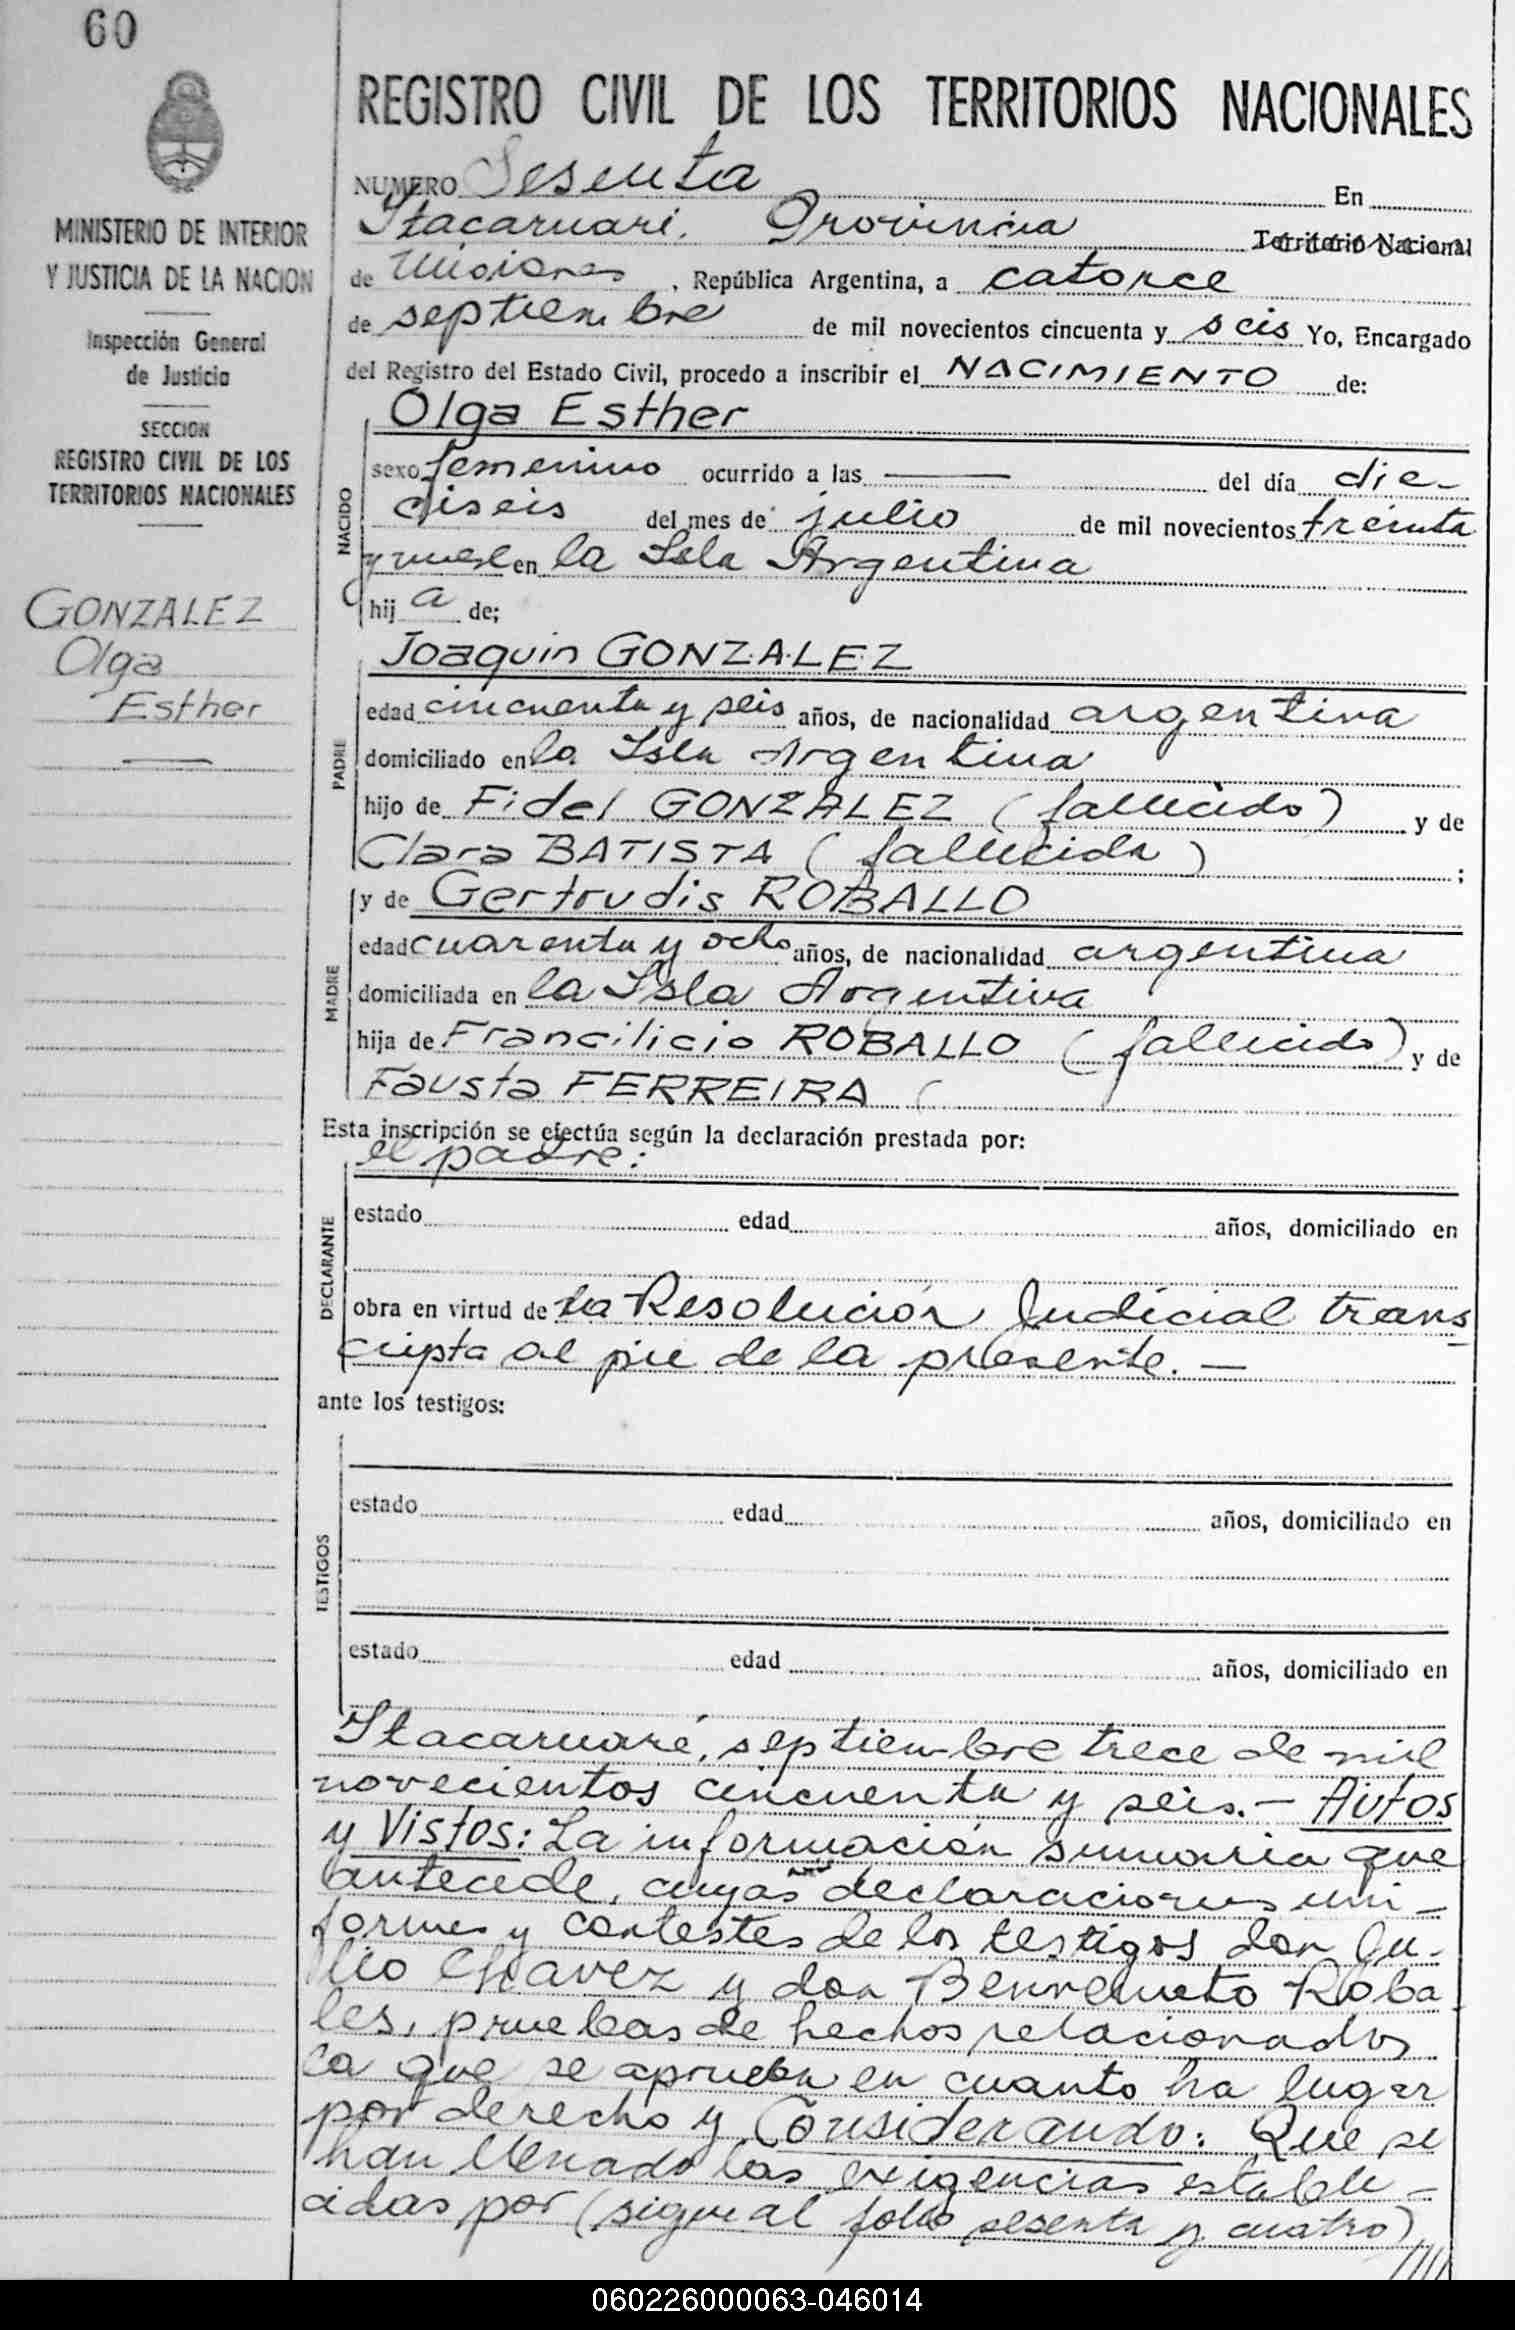 60
REGISTRO CIVIL DE LOS TERRITORIOS NACIONALES
MINISTERIO DE INTERIOR
Y JUSTICIA DE LA NACION
Inspección General
de Justicia
SECCION
REGISTRO CIVIL DE LOS
TERRITORIOS NACIONALES
GONZALEZ
Olga
Esther
NUMERO Sesenta En
Itacaruari. Provincia Territorio Nacional
de Misiones, República Argentina, a catorce
de septiembre de mil novecientos cincuenta y seis Yo, Encargado
del Registro del Estado Civil, procedo a inscribir el NACIMIENTO de:
NACIDO
Olga Esther
sexo femenino ocurrido a las — del día die-
ciseis del mes de julio de mil novecientos treinta
y nueve en la Isla Argentina
hij a de;
PADRE
Joaquin GONZALEZ
edad cincuenta y seis años, de nacionalidad argentina
domiciliado en la Isla Argentina
hijo de Fidel GONZALEZ (fallecido) y de
Clara BATISTA (fallecida) ;
MADRE
y de Gertrudis ROBALLO
edad cuarenta y ocho años, de nacionalidad argentina
domiciliada en la Isla Argentina
hija de Francilicio ROBALLO (fallecido) y de
Fausta FERREIRA (
Esta inscripción se efectúa según la declaración prestada por:
DECLARANTE
el padre:
estado edad años, domiciliado en
obra en virtud de la Resolución Judicial trans
cripta al pie de la presente. —
ante los testigos:
TESTIGOS
estado edad años, domiciliado en
estado edad años, domiciliado en
Itacaruaré, septiembre trece de mil
novecientos cincuenta y seis.— Autos
y Vistos: La información sumaria que
antecede, cuyas declaraciones uni-
formes y contestes de los testigos don Ju-
lio Chavez y don Benvenuto Roba
les, pruebas de hechos relacionados
la que se aprueba en cuanto ha lugar
por derecho y Considerando: Que se
han llenado las exigencias estable-
cidas por (sigue al folio sesenta y cuatro)
060226000063-046014